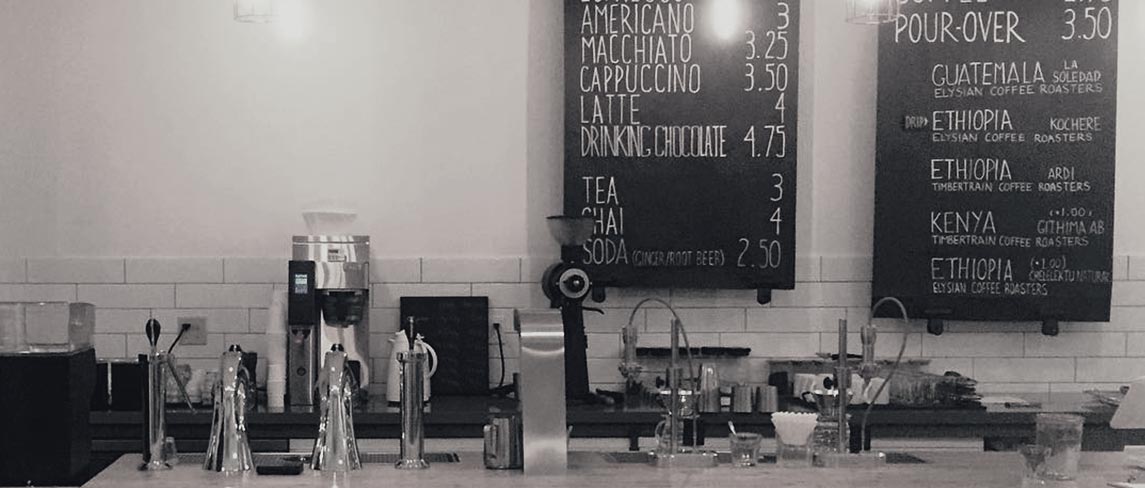 AMERICANO 3
MACCHIATO 3.25
CAPPUCCINO 3.50
LATTE 4
DRINKING CHOCOLATE 4.75
TEA 3
CHAI 4
SODA (GINGER/ROOT BEER) 2.50
POUR-OVER 3.50
GUATEMALA LA SOLEDAD
ELYSIAN COFFEE ROASTERS
DRIP ETHIOPIA KOCHERE
ELYSIAN COFFEE ROASTERS
ETHIOPIA ARDI
TIMBERTRAIN COFFEE ROASTERS
KENYA (+1.00) GITHIMA AB
TIMBERTRAIN COFFEE ROASTERS
ETHIOPIA (+1.00) CHELELEKTU NATURAL
ELYSIAN COFFEE ROASTERS